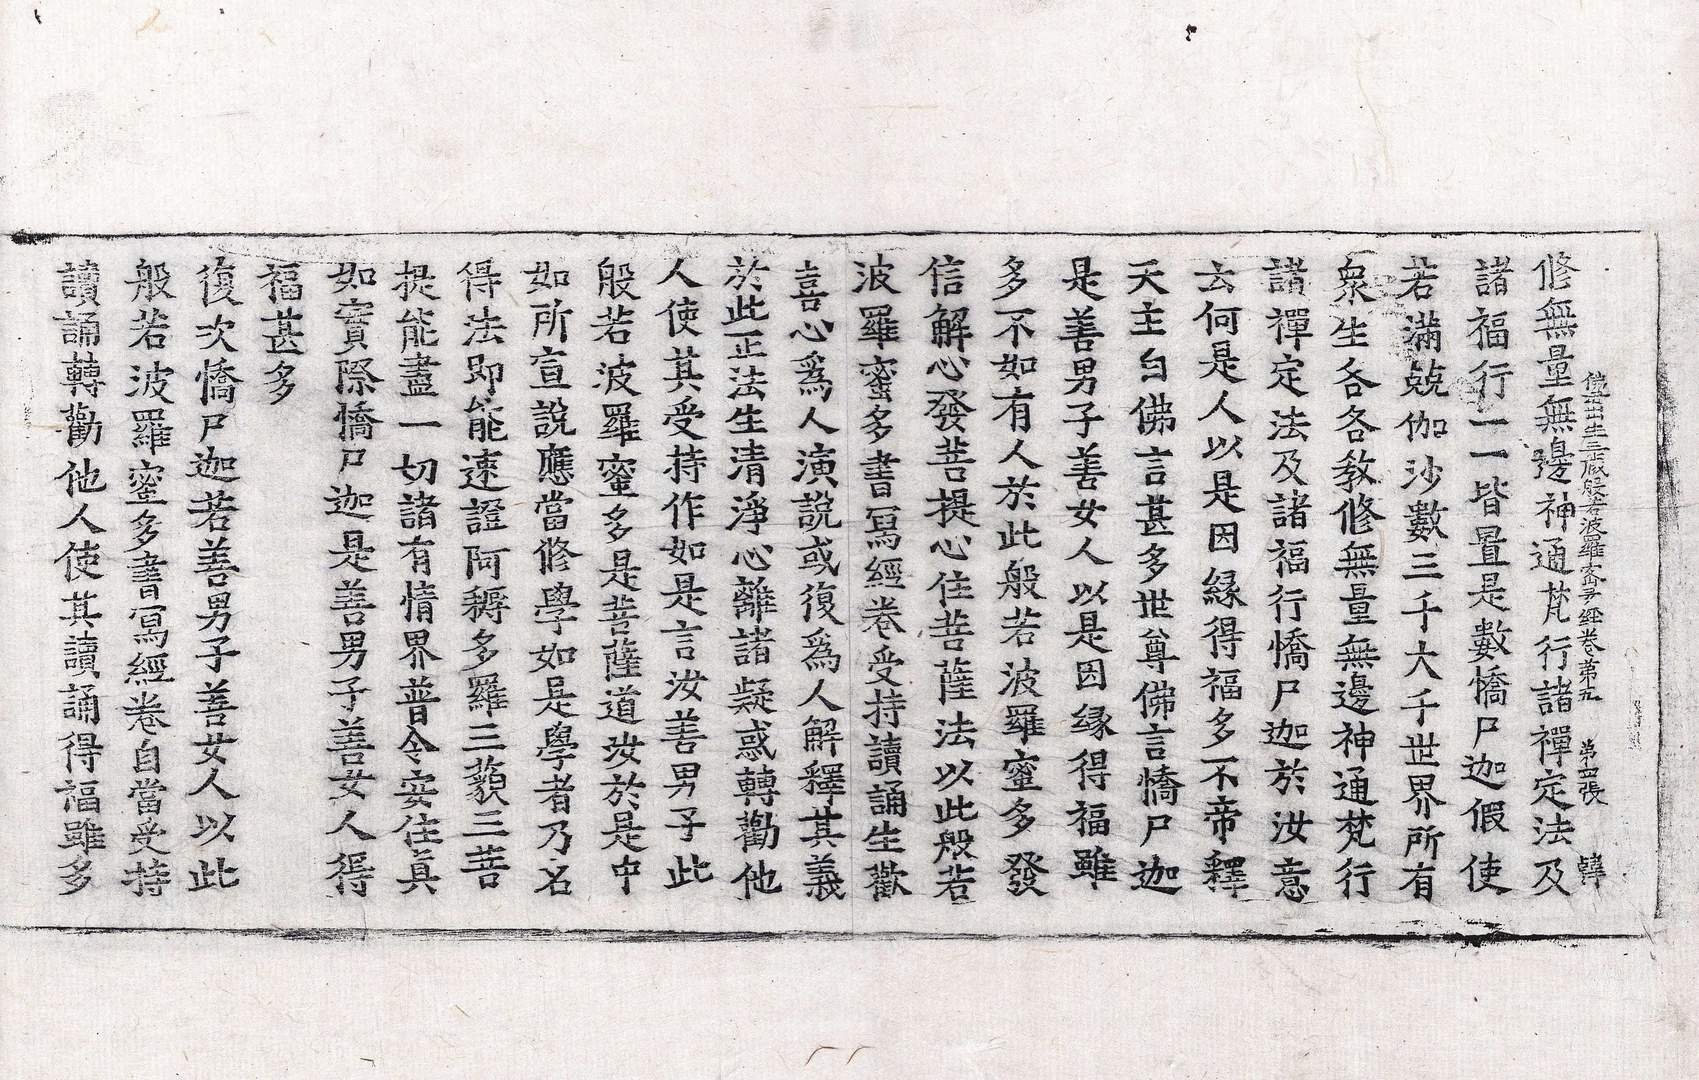 佛母出生三法藏般若波羅蜜多經卷第五　第四張　韓
修無量無邊神通梵行諸禪定法及
諸福行一一皆置是數憍尸迦假使
若滿殑伽沙數三千大千世界所有
衆生各各教修無量無邊神通梵行
諸禪定法及諸福行憍尸迦於汝意
云何是人以是因縁得福多不帝釋
天主白佛言甚多世尊佛言憍尸迦
是善男子善女人以是因縁得福雖
多不如有人於此般若波羅蜜多發
信解心發菩提心住菩薩法以此般若
波羅蜜多書寫經卷受持讀誦生歡
喜心爲人演說或復爲人解釋其義
於此正法生清淨心離諸疑惑轉勸他
人使其受持作如是言汝善男子此
般若波羅蜜多是菩薩道汝於是中
如所宣說應當修學如是學者乃名
得法即能速證阿耨多羅三藐三菩
提能盡一切諸有情界普令安住眞
如實際憍尸迦是善男子善女人得
福甚多
復次憍尸迦若善男子善女人以此
般若波羅蜜多書寫經卷自當受持
讀誦轉勸他人使其讀誦得福雖多